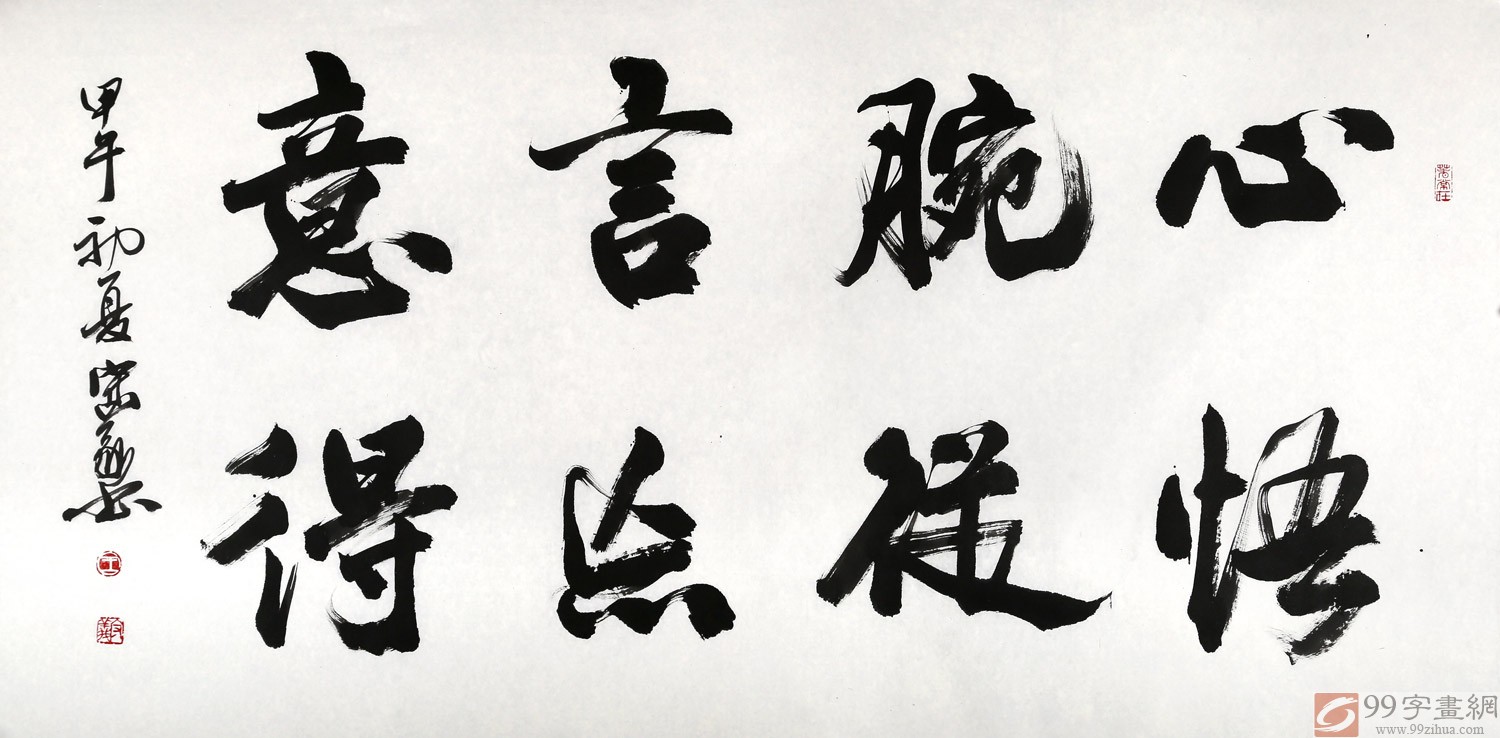 心悟
腕從
言忘
意得
甲午初夏
99字畫網
www.99zihua.com